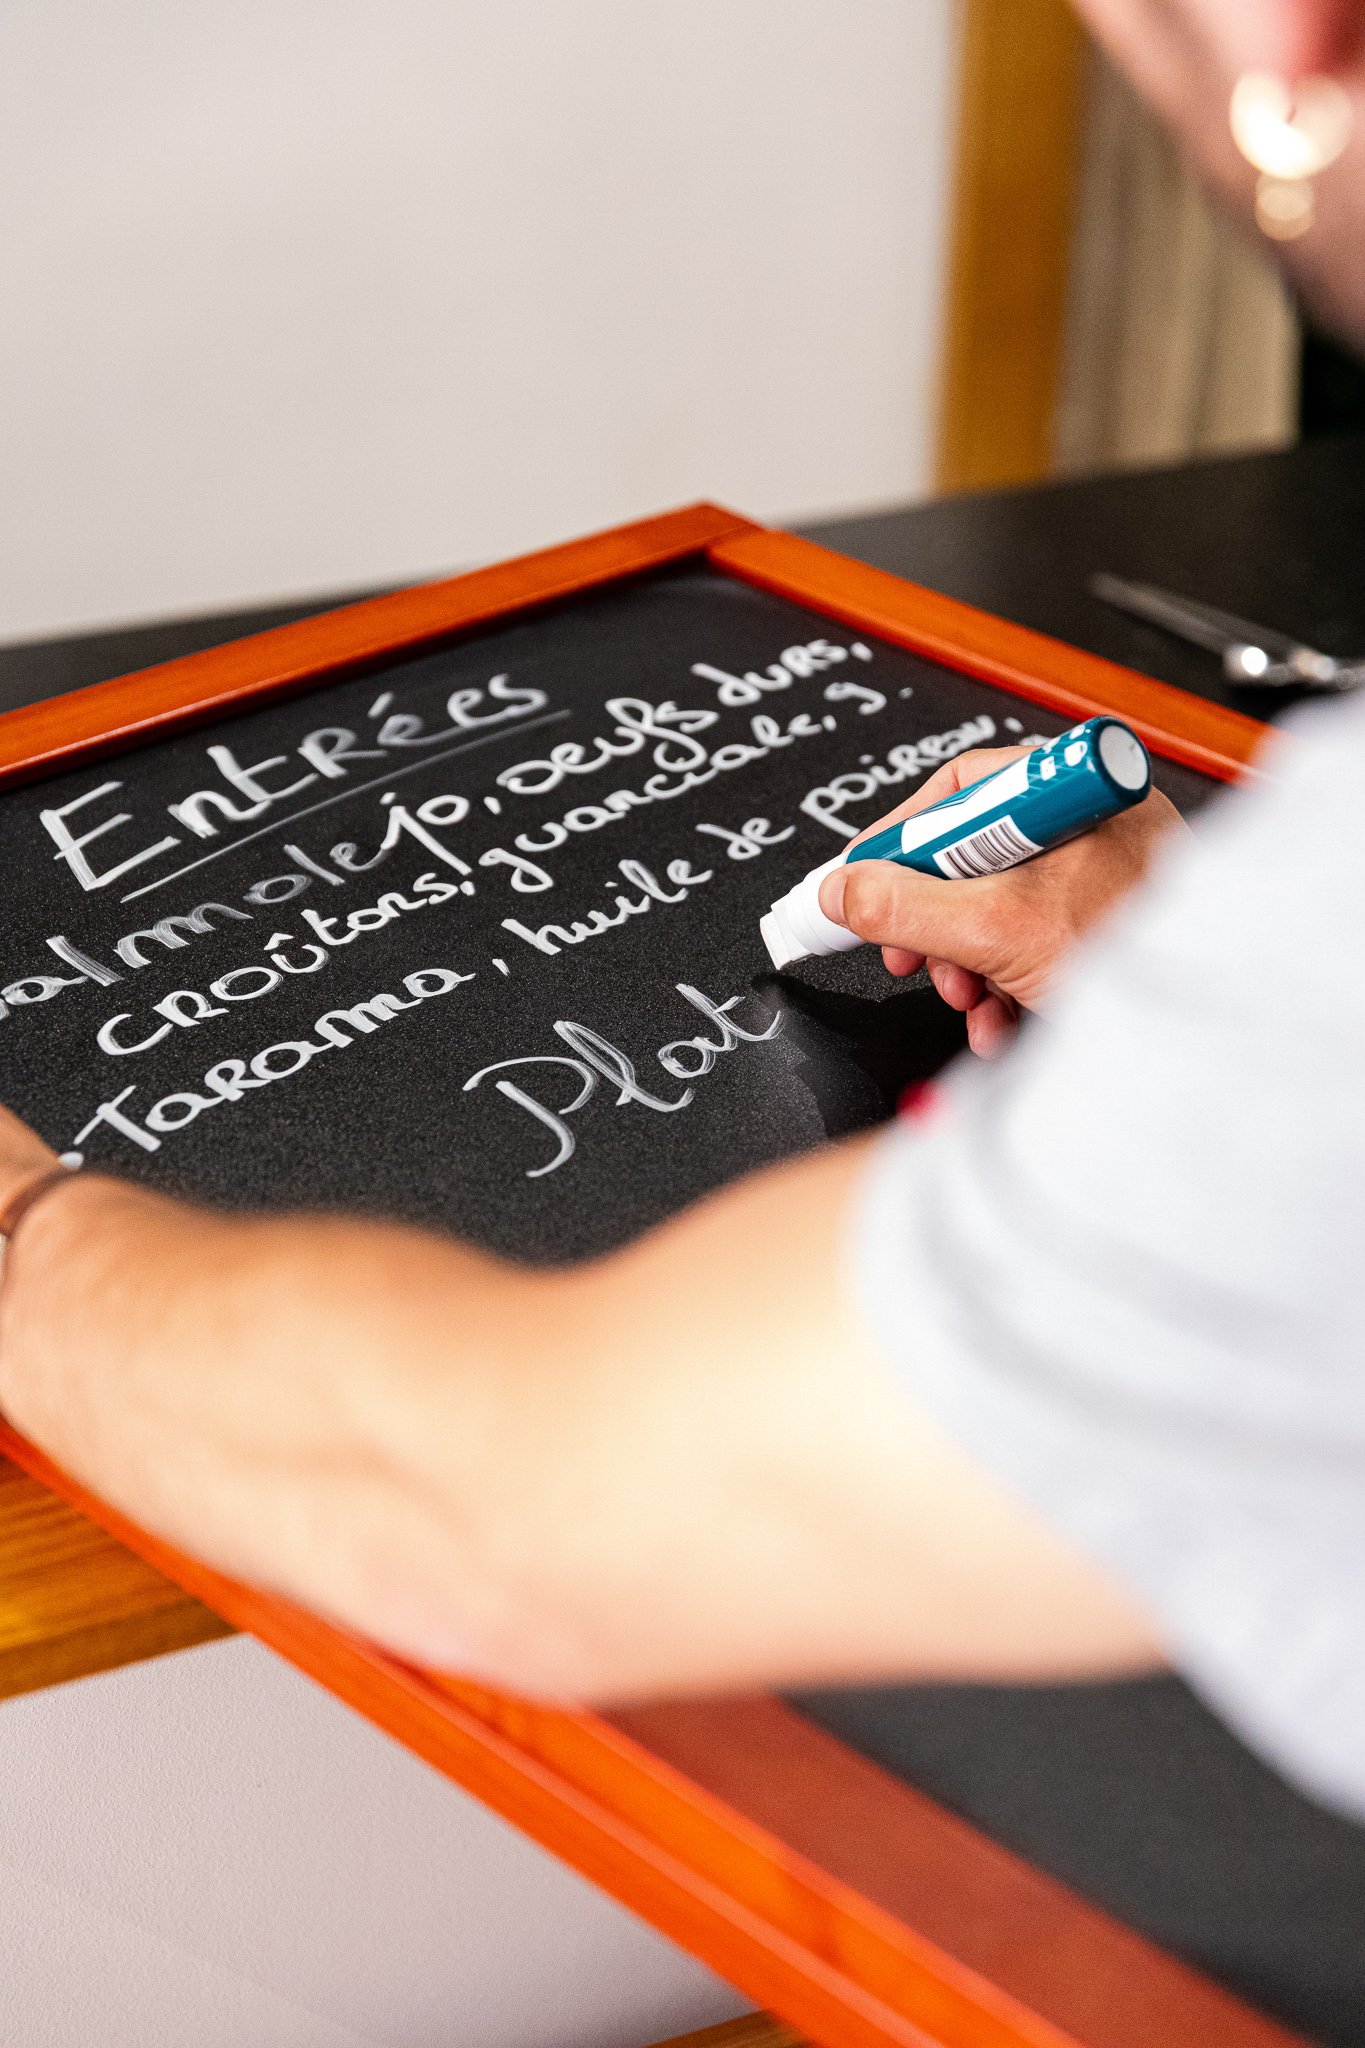 Entrées
almolejo, oeufs durs,
CROÛtons, guanciale, 9.
. Tarama, huile de poireau,
Plat